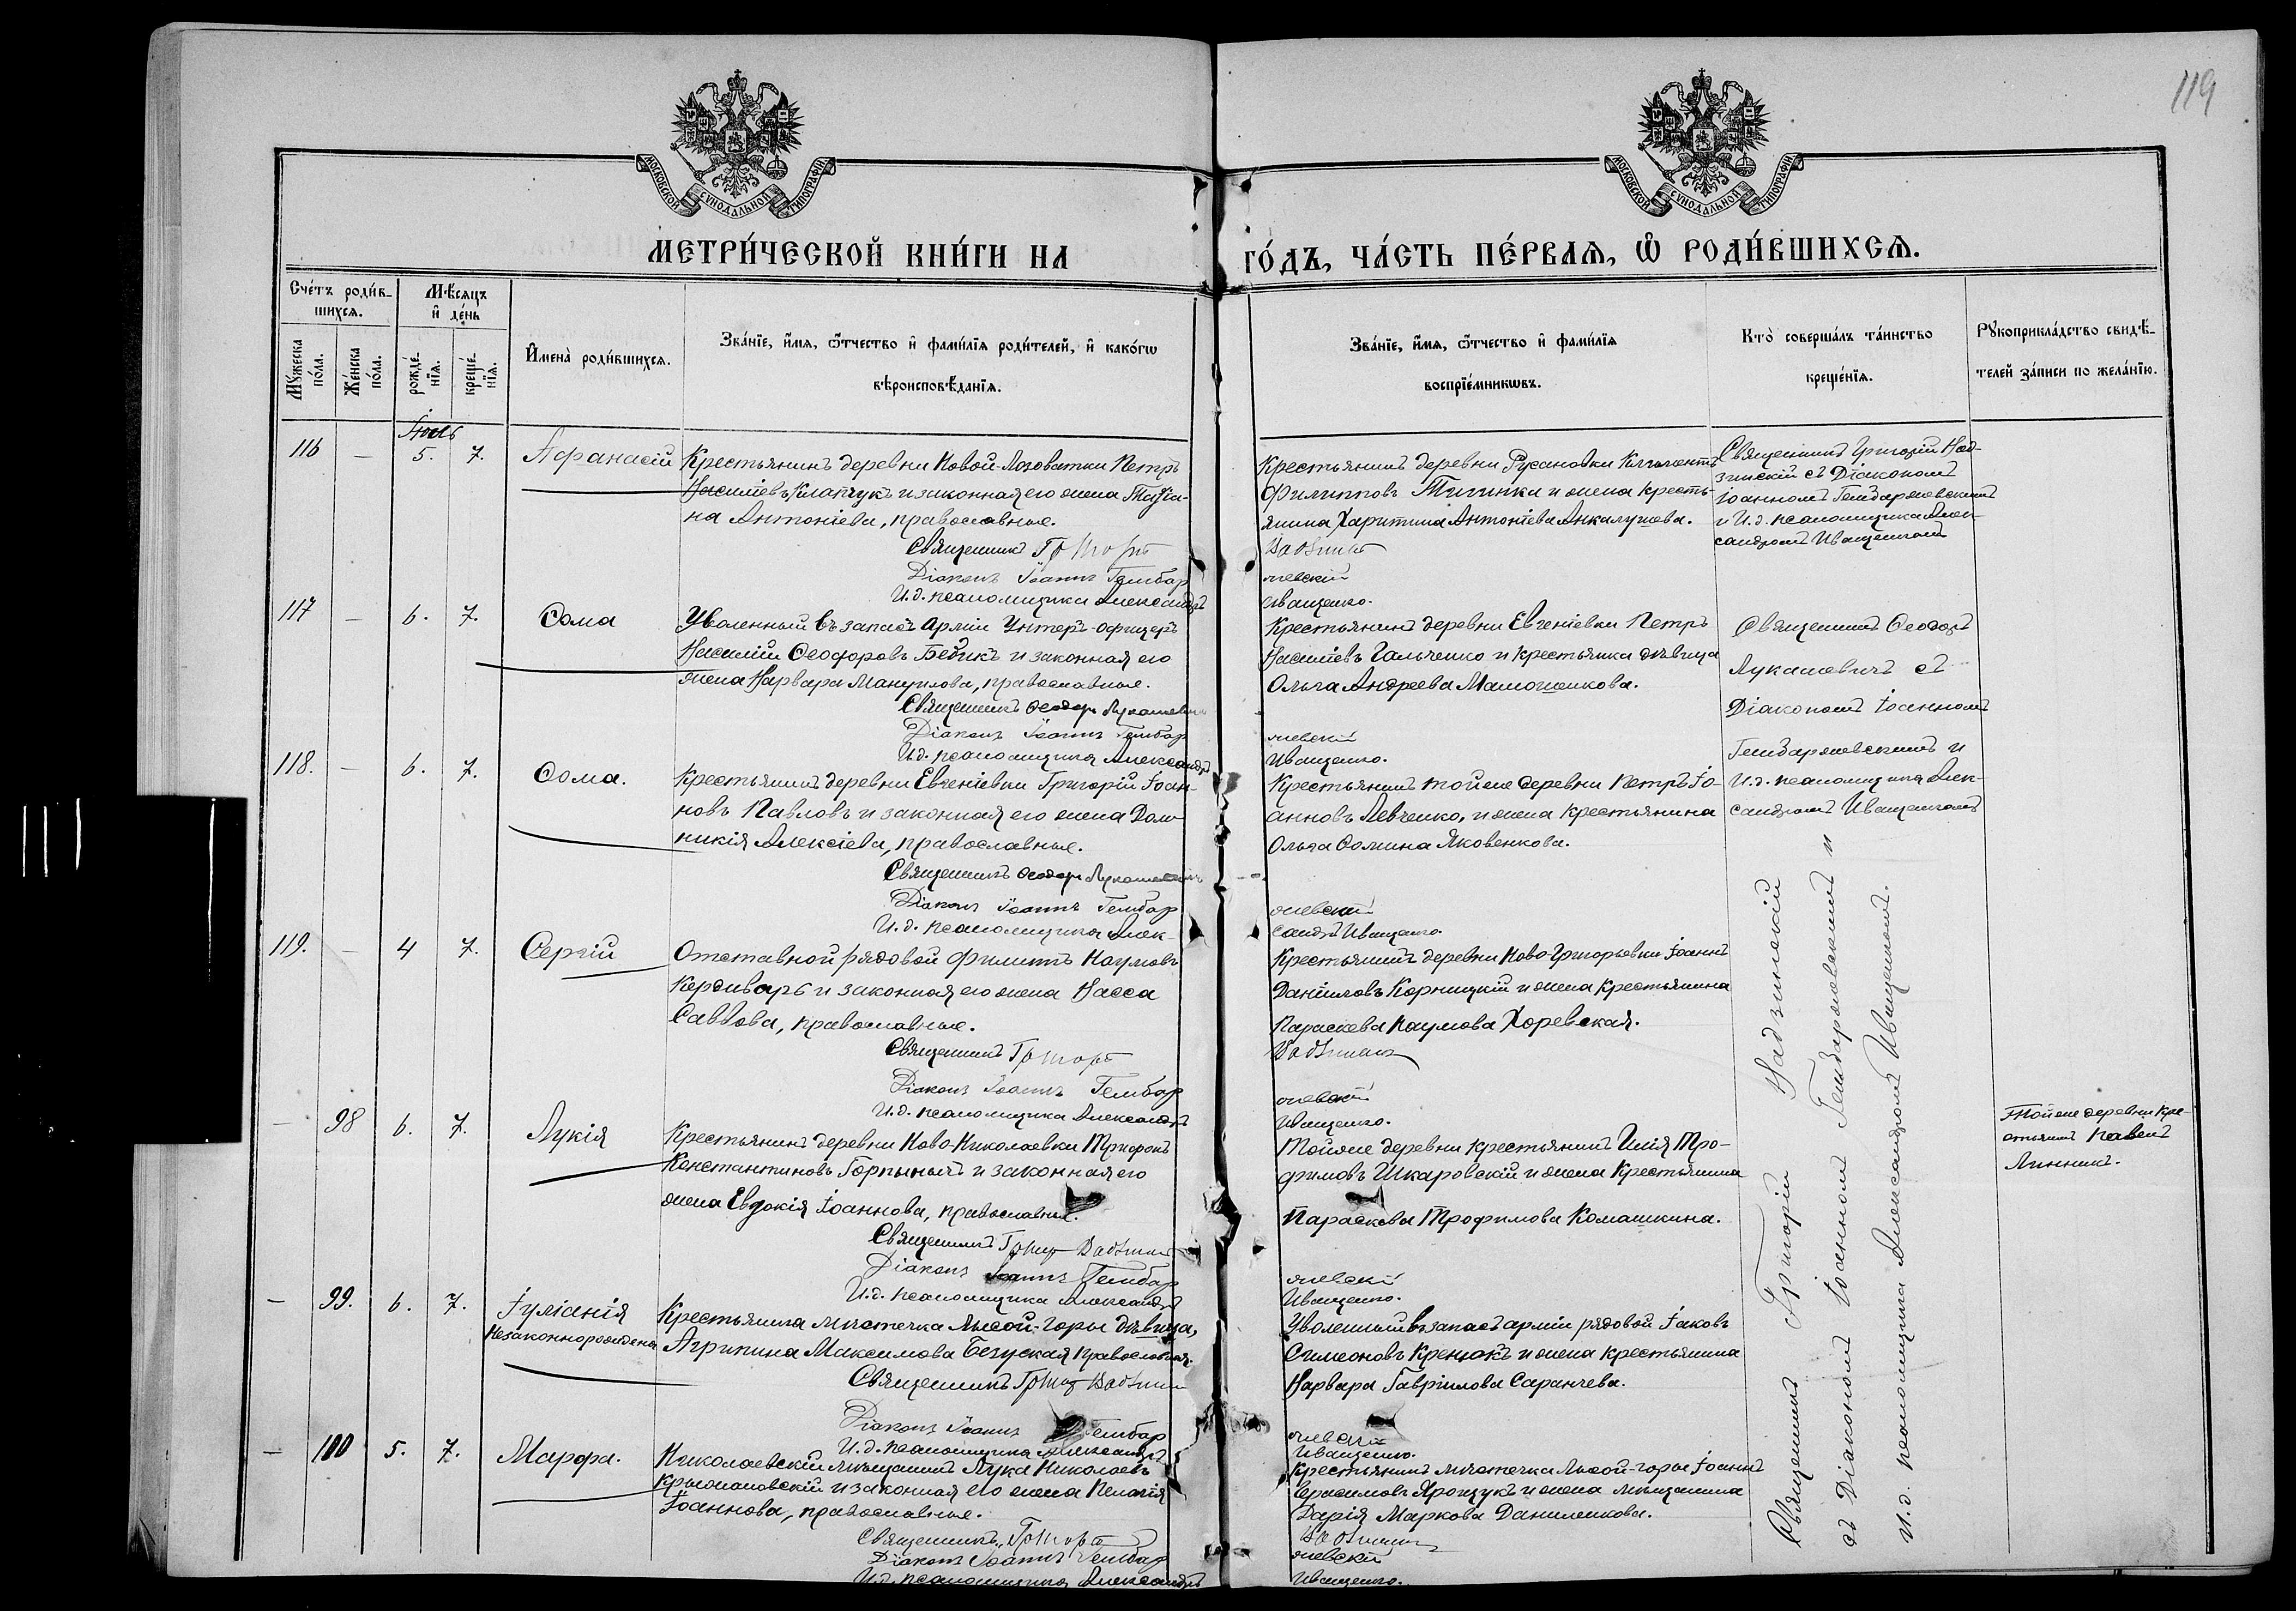 119
МОСКОВСКОЙ СѴНОДАЛЬНОЙ ТИПОГРАФІИ
МОСКОВСКОЙ СѴНОДАЛЬНОЙ ТИПОГРАФІИ
МЕТРИ́ЧЕСКОЙ КНИ́ГИ НА
ГО́ДЪ, ЧА́СТЬ ПЕ́РВАЯ, Ѡ РОДИ́ВШИХСЯ.
Сче́тъ роди́в-
шихся.
Мѣ́сяцъ
и де́нь
Мꙋ́жеска по́ла.
Же́нска по́ла.
рожде́нїя.
креще́нїя.
И҆мена̀ роди́вшихся.
Зва́нїе, и҆́мя, ѻ҆́тчество и҆ фами́лїя роди́телей, и҆ како́гѡ
вѣроисповѣ́данїя.
Зва́нїе, и҆́мя, ѻ҆́тчество и҆ фами́лїя
воспрїе́мникѡвъ.
Кто̀ соверша́лъ та́инство
креще́нїя.
Рꙋкоприкла́дство свидѣ́-
телей за́писи по жела́нїю.
Іюль
116 — 5. 7. Афанасій
Крестьянинъ деревни Новой-Лозоватки Петръ
Василіевъ Клапчукъ и законная его жена Татіа-
на Антоніева, православные.
Священникъ Григорій
Діаконъ Іоаннъ Гембар
И.д. псаломщика Александръ
Крестьянинъ деревни Русановки Климентъ
Филипповъ и жена кресть-
янина Харитина Антоніева
Надзинскій
жевскій
Иващенко.
Священникъ Григорій Над-
зинскій съ Діакономъ
Іоанномъ Гембаржевскимъ
и И.д. псаломщика Алек-
сандромъ Иващенкомъ
117 — 6. 7. Ѳома
Уволенный въ запасъ арміи Унтеръ-офицеръ
Василій Ѳеодоровъ Бедикъ и законная его
жена Варвара Мануилова, православные.
Священникъ Ѳеодоръ Лукашевичъ
Діаконъ Іоаннъ Гембар
И.д. псаломщика Александръ
Крестьянинъ деревни Евгеніевки Петръ
Василіевъ Гальченко и крестьянка дѣвица
Ольга Андреева Мамошенкова.
жевскій
Иващенко.
Священникъ Ѳеодоръ
Лукашевичъ съ
Діакономъ Іоанномъ
Гембаржевскимъ и
И.д. псаломщика Алек-
сандромъ Иващенкомъ
118. — 6. 7. Ѳома.
Крестьянинъ деревни Евгеніевки Григорій Іоан-
новъ Павловъ и законная его жена Дом-
никія Алексіева, православные.
Священникъ Ѳеодоръ Лукашевичъ
Діаконъ Іоаннъ Гембар
И.д. псаломщика Алек-
Крестьянинъ тойже деревни Петръ Іо-
анновъ Левченко, и жена крестьянина
Ольга Ѳомина Яковенкова.
жевскій
сандръ Иващенко.
119. — 4 7. Сергій
Отставной рядовой Филиппъ Наумовъ
Кердиваръ и законная его жена Васса
Саввова, православные.
Священникъ Григорій
Діаконъ Іоаннъ Гембар
И.д. псаломщика Александръ
Крестьянинъ деревни Ново-Григорьевки Іоаннъ
Даніиловъ Корницкій и жена крестьянина
Параскева Наумова Хоревская.
Надзинскій
жевскій
Иващенко.
— 98 6. 7. Лукія
Крестьянинъ деревни Ново-Николаевки Трифонъ
Константиновъ Горпыничъ и законная его
жена Евдокія Іоаннова, православные.
Священникъ Григорій Надзинскій
Діаконъ Іоаннъ Гембар
И.д. псаломщика Александръ
Тойже деревни крестьянинъ Илія Тро-
фимовъ Шкаровскій и жена крестьянина
Параскева Трофимова Комашкина.
жевскій
Иващенко.
Тойже деревни кре-
стьянинъ Павелъ
Линникъ.
— 99. 6. 7. Іуліанія
Незаконнорожденна
Крестьянка мѣстечка Лысой-Горы дѣвица,
Агрипина Максимова Безуская православная.
Священникъ Григорій Надзинскій
Діаконъ Іоаннъ Гембар
И.д. псаломщика Александръ
Уволенный въ запасъ арміи рядовой Іаковъ
Симеоновъ Кренюкъ и жена крестьянина
Варвара Гавріилова Саранчева.
жевскій
Иващенко.
— 100 5. 7. Марфа.
Николаевскій мѣщанинъ Лука Николаевъ
Крыжановскій и законная его жена Пелагія
Іоаннова, православные.
Священникъ Григорій
Діаконъ Іоаннъ Гембар
И.д. псаломщика Александръ
Крестьянинъ мѣстечка Лысой-горы Іоаннъ
Герасимовъ и жена мѣщанина
Дарія Маркова Даниленкова.
Надзинскій
жевскій
Иващенко.
Священникъ Григорій Надзинскій
съ Діакономъ Іоанномъ Гембаржевскимъ и
И.д. псаломщика Александромъ Иващенкомъ.